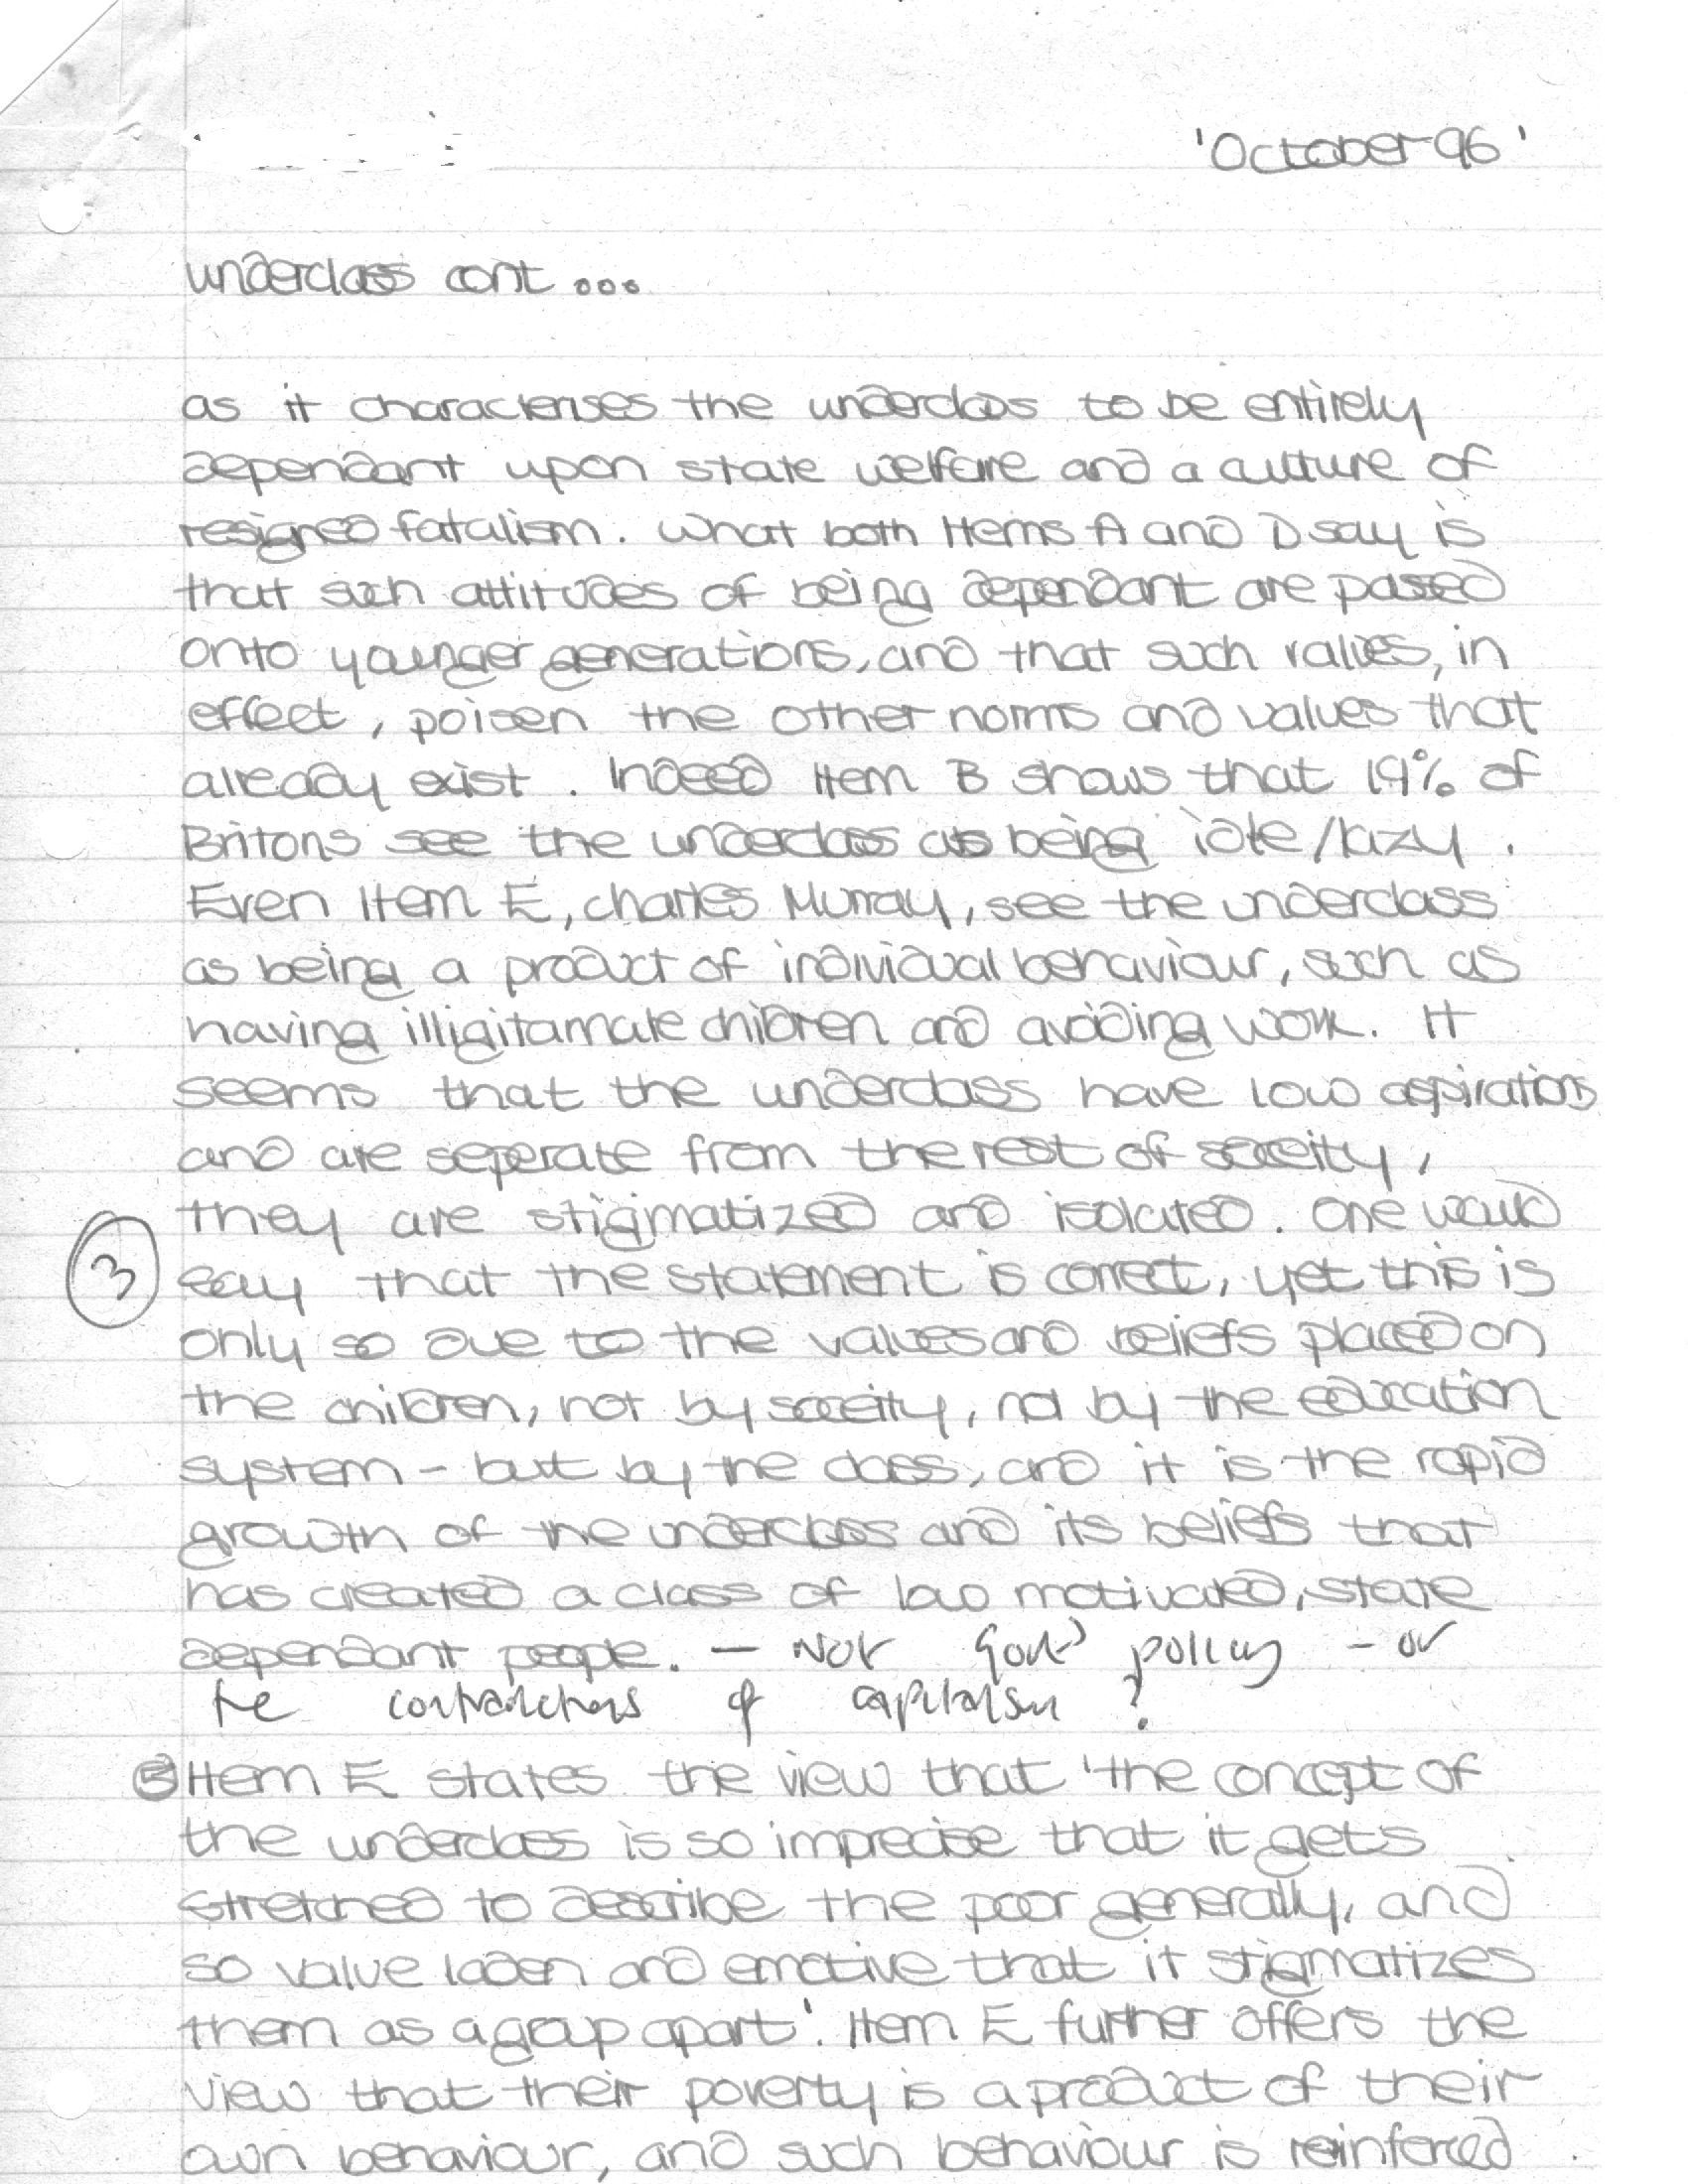 'October 96'
underclass cont ...
as it characterises the underclass to be entirely
dependant upon state welfare and a culture of
resigned fatalism. What both Items A and D say is
that such attitudes of being dependant are passed
onto younger generations, and that such values, in
effect, poisen the other norms and values that
already exist. Indeed Item B shows that 19% of
Britons see the underclass as being idle/lazy.
Even Item E, Charles Murray, see the underclass
as being a product of individual behaviour, such as
having illigitamate children and avoiding work. It
seems that the underclass have low aspirations
and are seperate from the rest of soceity,
they are stigmatized and isolated. One would
3 say that the statement is correct, yet this is
only so due to the values and beliefs placed on
the children, not by soceity, not by the education
system - but by the class, and it is the rapid
growth of the underclass and its beliefs that
has created a class of low motivated, state
dependant people. - Not Govt policy - or
the contradictions of capitalism ?
5 Item E states the view that 'the concept of
the underclass is so imprecise that it gets
stretched to describe the poor generally, and
so value laden and emotive that it stigmatizes
them as a group apart'. Item E further offers the
view that their poverty is a product of their
own behaviour, and such behaviour is reinforced